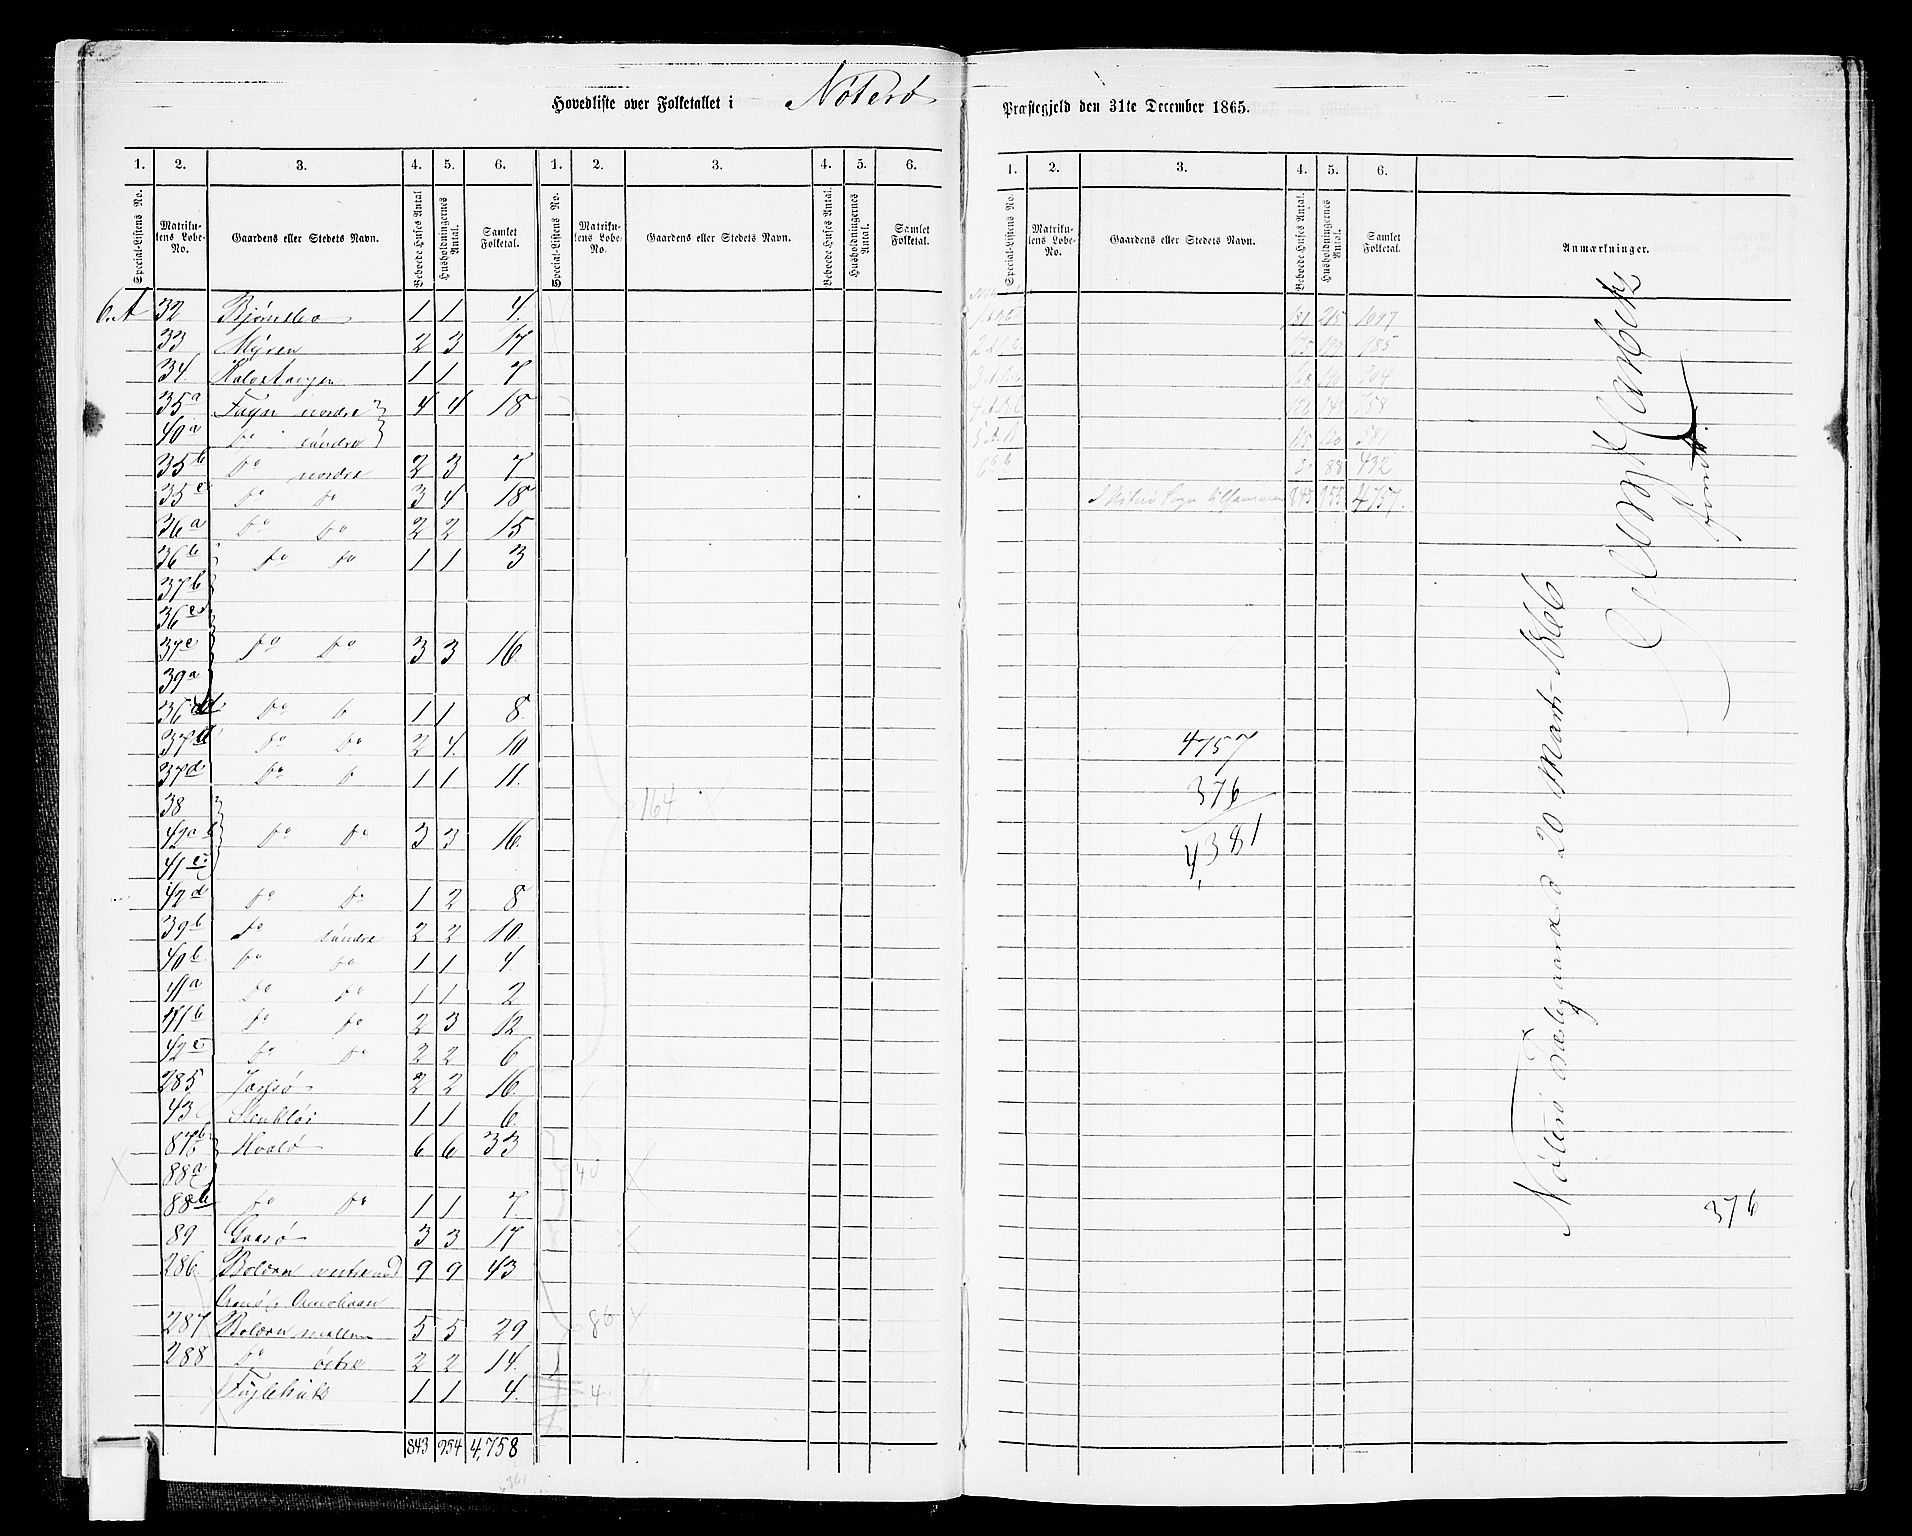 Hovedliste over Folketallet i Nöterö Præstegjeld den 31te December 1865.
1. 2. 3. 4. 5. 6. 1. 2. 3. 4. 5. 6.
Special-Listens No. Matrikulens Løbe-No. Gaardens eller Stedets Navn. Beboede Huses Antal Husholdningernes Antal. Samlet Folketal. Special-Listens No. Matrikulens Løbe-No. Gaardens eller Stedets Navn. Beboede Huses Antal. Husholdningernes Antal. Samlet Folketal.
6. A 32 Bjørnebo 1 1 4.
33 Myren 2 3 17
34. 1 1 7
35a Føyn nordre 4 4 18
40a do søndre
35b do nordre 2 3 7
35c do do 3 4 18
36a do do 2 2 15
36b do do 1 1 3
37b
36c
37c do do 3 3 16.
39a
36d do 1 1 8.
37a do do 2 4. 10
37d do 1 1 11.
38
42a do do 3 3 16.
41c
42d do do 1 2 8
39b do søndre 2 2 10.
40b do do 1 1 4.
41a do do 1 1 2
41b do do 2 3 12
42c do do 2 2 6
285 Jarsø 2 2 16.
43 1 1 6.
87b Hvalø 6 6 33
88a
88b do do 1 1 7.
89 Gaasø 3 3 17
286. Bolærn vestre 9 9 43
287 Bolærn mellem 5 5 29
288 do østre 2 2 14.
Fuglehuk 1 1 4.
843 954 4,758
164
40
86
4.
1. 2. 3. 4. 5. 6.
Special-Listens No. Matrikulens Løbe-No. Gaardens eller Stedets Navn. Beboede Huses Antal. Husholdningernes Antal. Samlet Folketal. Anmærkninger.
88 432
I Nøterø Sogn tilsammen 843 955 4757.
4757
376
4,381
Nøterö Prestegaard d 20 Marts 1866
376